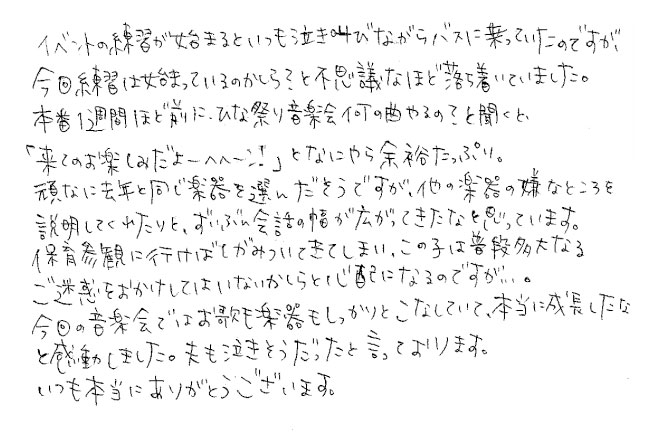 イベントの練習が始まるといつも泣き叫びながらバスに乗っていたのですが、
今回練習は始まっているのかしら?と不思議なほど落ち着いていました。
本番1週間ほど前に、ひな祭り音楽会何の曲やるの?と聞くと、
「来てのお楽しみだよーへへーン!」となにやら余裕たっぷり。
頑なに去年と同じ楽器を選んだそうですが、他の楽器の嫌なところを
説明してくれたりと、ずいぶん会話の幅が広がってきたなと思っています。
保育参観に行けばしがみついてきてしまい、この子は普段多大なる
ご迷惑をおかけしてはいないかしらと心配になるのですが…。
今回の音楽会ではお歌も楽器もしっかりとこなしていて、本当に成長したな
と感動しました。夫も泣きそうだったと言っております。
いつも本当にありがとうございます。